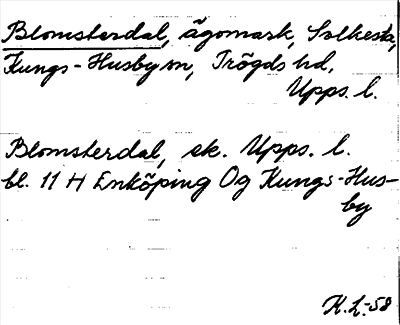 Blomsterdal, ägomark, Solkesta,
Kungs-Husby sn, Trögds hd,
Upps. l.
Blomsterdal, ek. Upps. l.
bl. 11 H Enköping Og Kungs-Hus-
by
K.L.-58